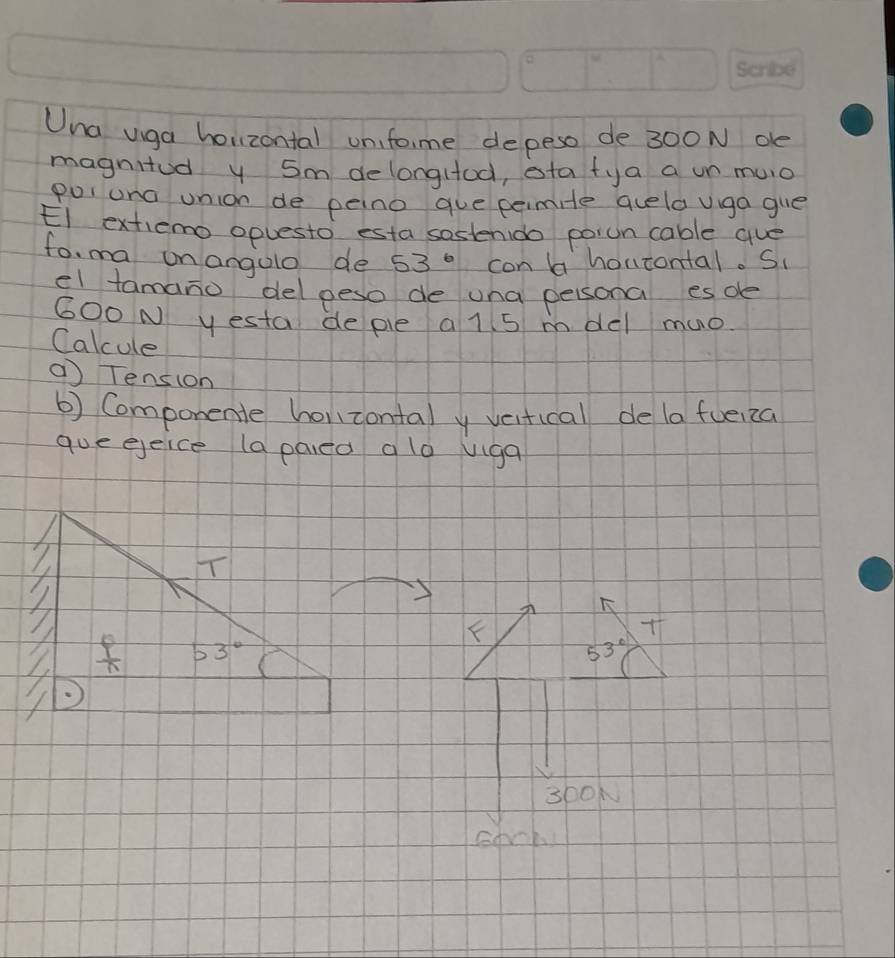 Scribe
Una viga horizontal uniforme de peso de 300N de
magnitud y 5m de longitud, esta fija a un muro
por una union de perno que permite que la viga gire
El extremo opuesto esta sostenido por un cable que
forma un angulo de 53° con la horizontal. Si
el tamaño del peso de una persona es de
600 N y esta de pie a 1.5 m del muro.
Calcule
a) Tension
b) Componente horizontal y vertical de la fuerza
que ejerce la pared a la viga
T
53°
F
T
53°
300N
600N